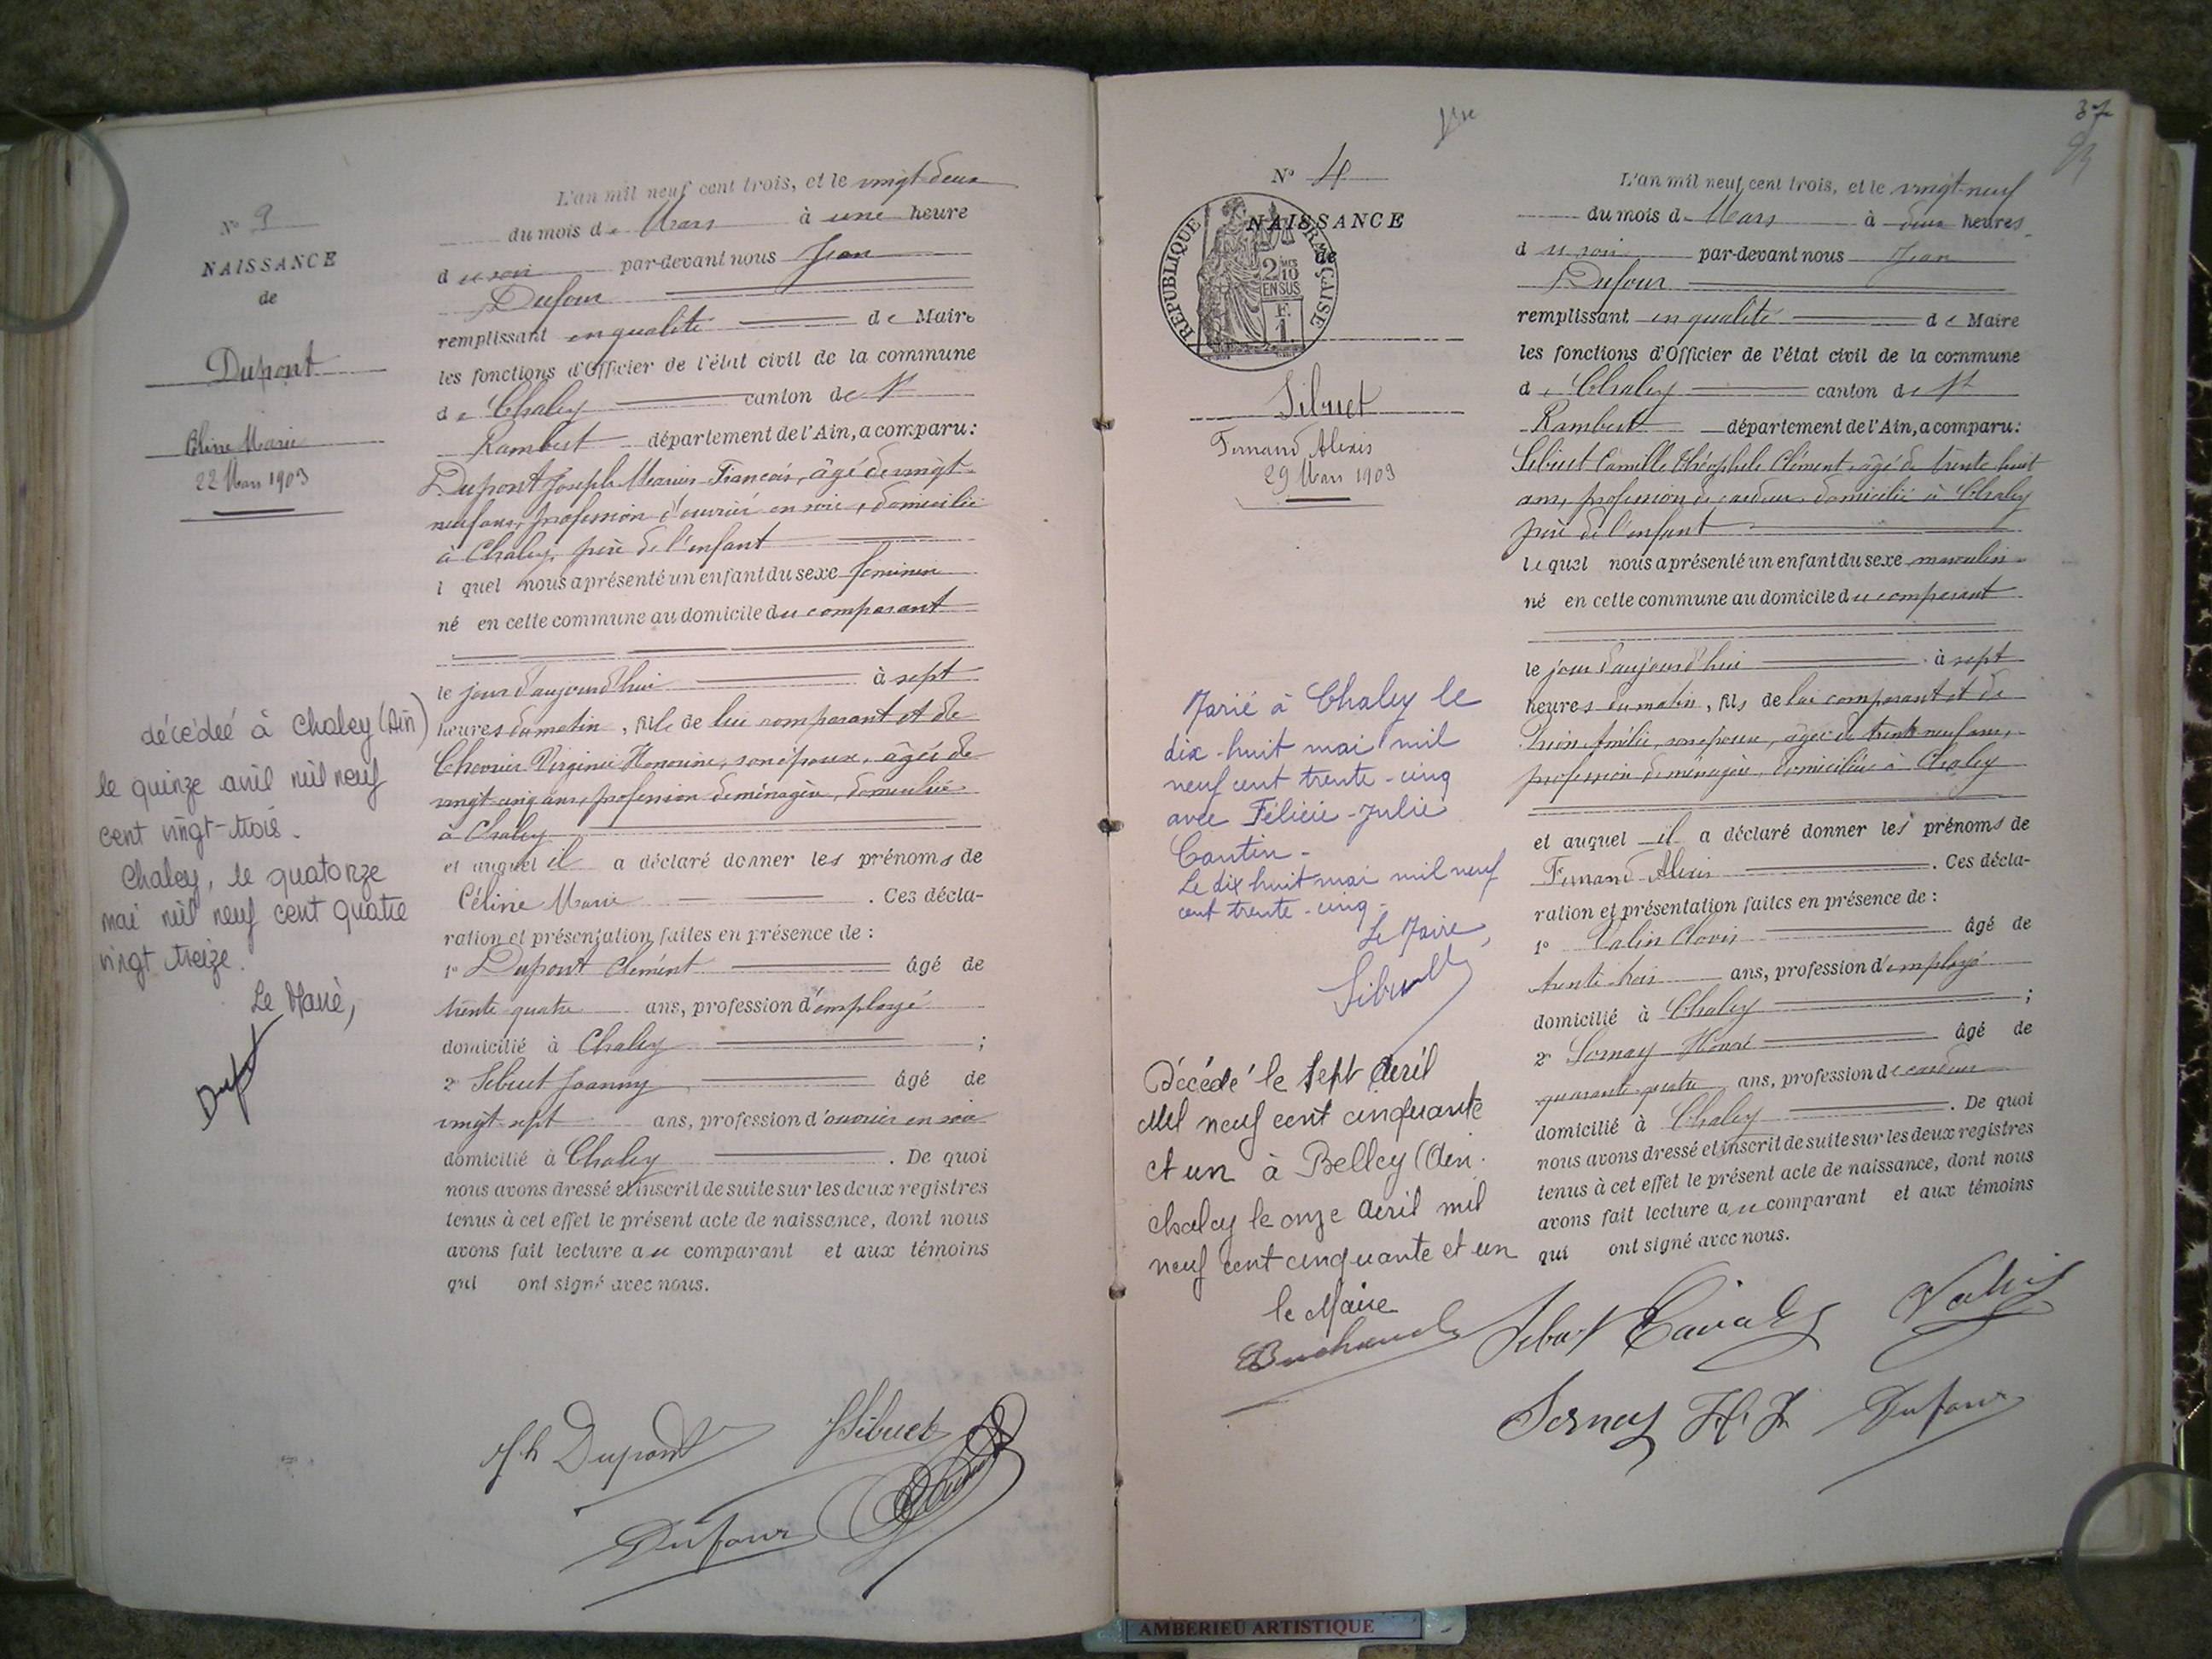 N° 3
NAISSANCE
de
Dupont
Céline Marie
22 Mars 1903
décédeé à Chaley (Ain)
le quinze avril mil neuf
cent vingt-trois.
Chaley, le quatorze
mai mil neuf cent quatre
vingt treize.
Le Maire,
L'an mil neuf cent trois, et le vingt-deux
du mois de Mars à une heure
du soir par-devant nous Jean
Dufour
remplissant en qualité de Maire
les fonctions d'Officier de l'état civil de la commune
de Chaley canton de St
Rambert département de l'Ain, a comparu :
Dupont Joseph Marius François, âgé de vingt
neuf ans, profession d'ouvrier en soie, domicilié
à Chaley, père de l'enfant
l quel nous a présenté un enfant du sexe féminin
né en cette commune au domicile du comparant
le jour d'aujourd'hui à sept
heures du matin, fille de lui comparant et de
Virginie Honorine, son épouse, âgée de
vingt cinq ans, profession de ménagère, domiciliée
à Chaley
et auquel il a déclaré donner les prénoms de
Céline Marie . Ces décla-
ration et présentation faites en présence de :
1° Dupont Clément âgé de
trente quatre ans, profession d'employé
domicilié à Chaley ;
2° Sibuet Joanny âgé de
vingt sept ans, profession d'ouvrier en soie
domicilié à Chaley . De quoi
nous avons dressé et inscrit de suite sur les deux registres
tenus à cet effet le présent acte de naissance, dont nous
avons fait lecture au comparant et aux témoins
qui ont signé avec nous.
Jh Dupont JSibuet
Dufour
37
N° 4
NAISSANCE
de
RÉPUBLIQUE FRANÇAISE
2 MES
10
EN SUS
F.
1.
Sibuet
Fernand Alexis
29 Mars 1903
Marié à Chaley le
dix-huit mai mil
neuf cent trente-cinq
avec Félicie-Julie
Cantin.
Le dix huit mai mil neuf
cent trente-cinq.
Le Maire,
Sibuet
Décédé le sept avril
Mil neuf cent cinquante
et un à Belley (Ain.
Chaley le onze avril mil
neuf cent cinquante et un
le Maire
L'an mil neuf cent trois, et le vingt-neuf
du mois de Mars à deux heures
du soir par-devant nous Jean
Dufour
remplissant en qualité de Maire
les fonctions d'Officier de l'état civil de la commune
de Chaley canton de St
Rambert département de l'Ain, a comparu :
Sibuet Camille Théophile Clément, âgé de trente huit
ans, profession de cardeur domicilié à Chaley
père de l'enfant
lequel nous a présenté un enfant du sexe masculin
né en cette commune au domicile du comparant
le jour d'aujourd'hui à sept
heures du matin, fils de lui comparant et de
Amélie, son épouse, âgée de trente neuf ans,
profession de ménagère, domiciliée à Chaley
et auquel il a déclaré donner les prénoms de
Fernand Alexis . Ces décla-
ration et présentation faites en présence de :
1° Valin Clovis âgé de
trente trois ans, profession d'employé
domicilié à Chaley ;
2° Sornay Honoré âgé de
quarante quatre ans, profession de cardeur
domicilié à Chaley . De quoi
nous avons dressé et inscrit de suite sur les deux registres
tenus à cet effet le présent acte de naissance, dont nous
avons fait lecture au comparant et aux témoins
qui ont signé avec nous.
Sibuet Valin
Sornay Dufour
AMBERIEU ARTISTIQUE